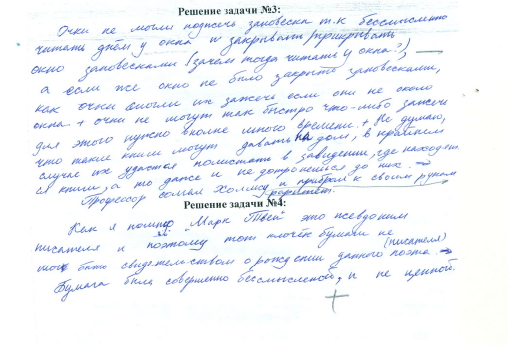 Решение задачи №3:
Очки не могли поджечь зановеска т.к бессмысленно
читать днём у окна и закрывать/прикрывать
окно зановесками (зачем тогда читать у окна?),
а если же окно не было закрыто зановесками,
как очки смогли их зажечь если они не около
окна + очки не могут так быстро что-либо зажечь
для этого нужно вполне много времени + Не думаю,
что такие книги могут давать на дом, в крайнем
случае их удастся полистать в заведении, где находят
ся книги, а то даже и не дотронешься до них.
Профессор солгал Холмсу и прибрал к своим рукам
раритет.
Решение задачи №4:
Как я помню "Марк Твен" это псевдоним
писателя и поэтому тот клочёк бумаги не
мог быть свидетельством о рождении данного поэта. (писателя)
Бумага была совершенно бессмысленой, и не ценной.
+